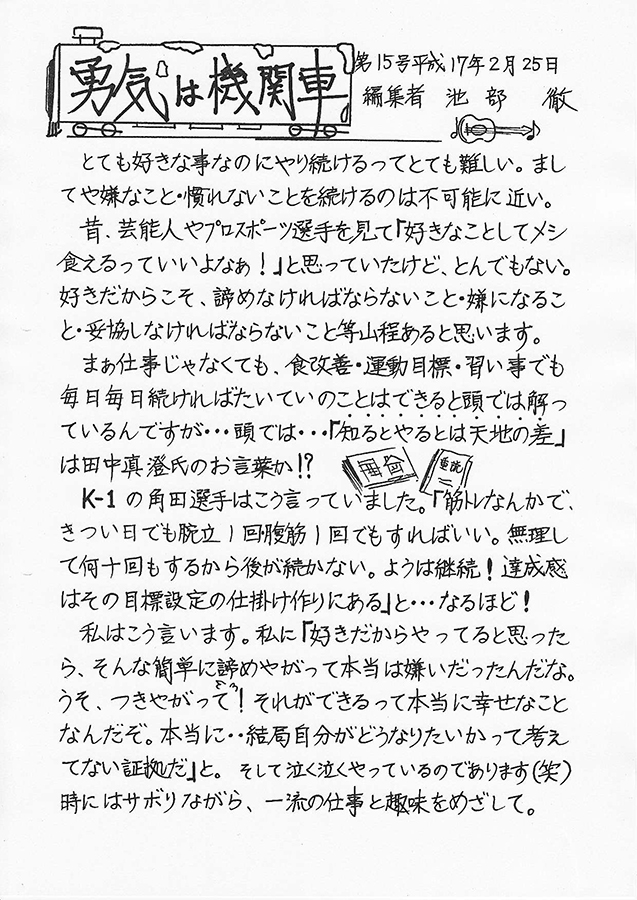 勇気は機関車
第15号平成17年2月25日
編集者 池部 徹
とても好きな事なのにやり続けるってとても難しい。まし
てや嫌なこと・慣れないことを続けるのは不可能に近い。
昔、芸能人やプロスポーツ選手を見て「好きなことしてメシ
食えるっていいよなぁ!」と思っていたけど、とんでもない。
好きだからこそ、諦めなければならないこと・嫌になるこ
と・妥協しなければならないこと等山程あると思います。
まぁ仕事じゃなくても、食改善・運動目標・習い事でも
毎日毎日続ければたいていのことはできると頭では解っ
ているんですが・・・頭では・・・「知るとやるとは天地の差」
は田中真澄氏のお言葉か!?
K-1の角田選手はこう言っていました。「筋トレなんかで、
きつい日でも腕立1回腹筋1回でもすればいい。無理し
て何十回もするから後が続かない。ようは継続!達成感
はその目標設定の仕掛け作りにある」と・・・なるほど!
私はこう言います。私に「好きだからやってると思った
ら、そんな簡単に諦めやがって本当は嫌いだったんだな。
うそ、つきやがって!それができるって本当に幸せなこと
なんだぞ。本当に・・結局自分がどうなりたいかって考え
てない証拠だ」と。そして泣く泣くやっているのであります(笑)
時にはサボりながら、一流の仕事と趣味をめざして。